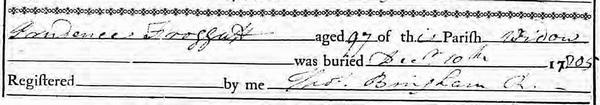 Prudence Froggatt aged 97 of this Parish Widow
was buried Decr 10th 1805
Registered by me Thos. Bingham C. —